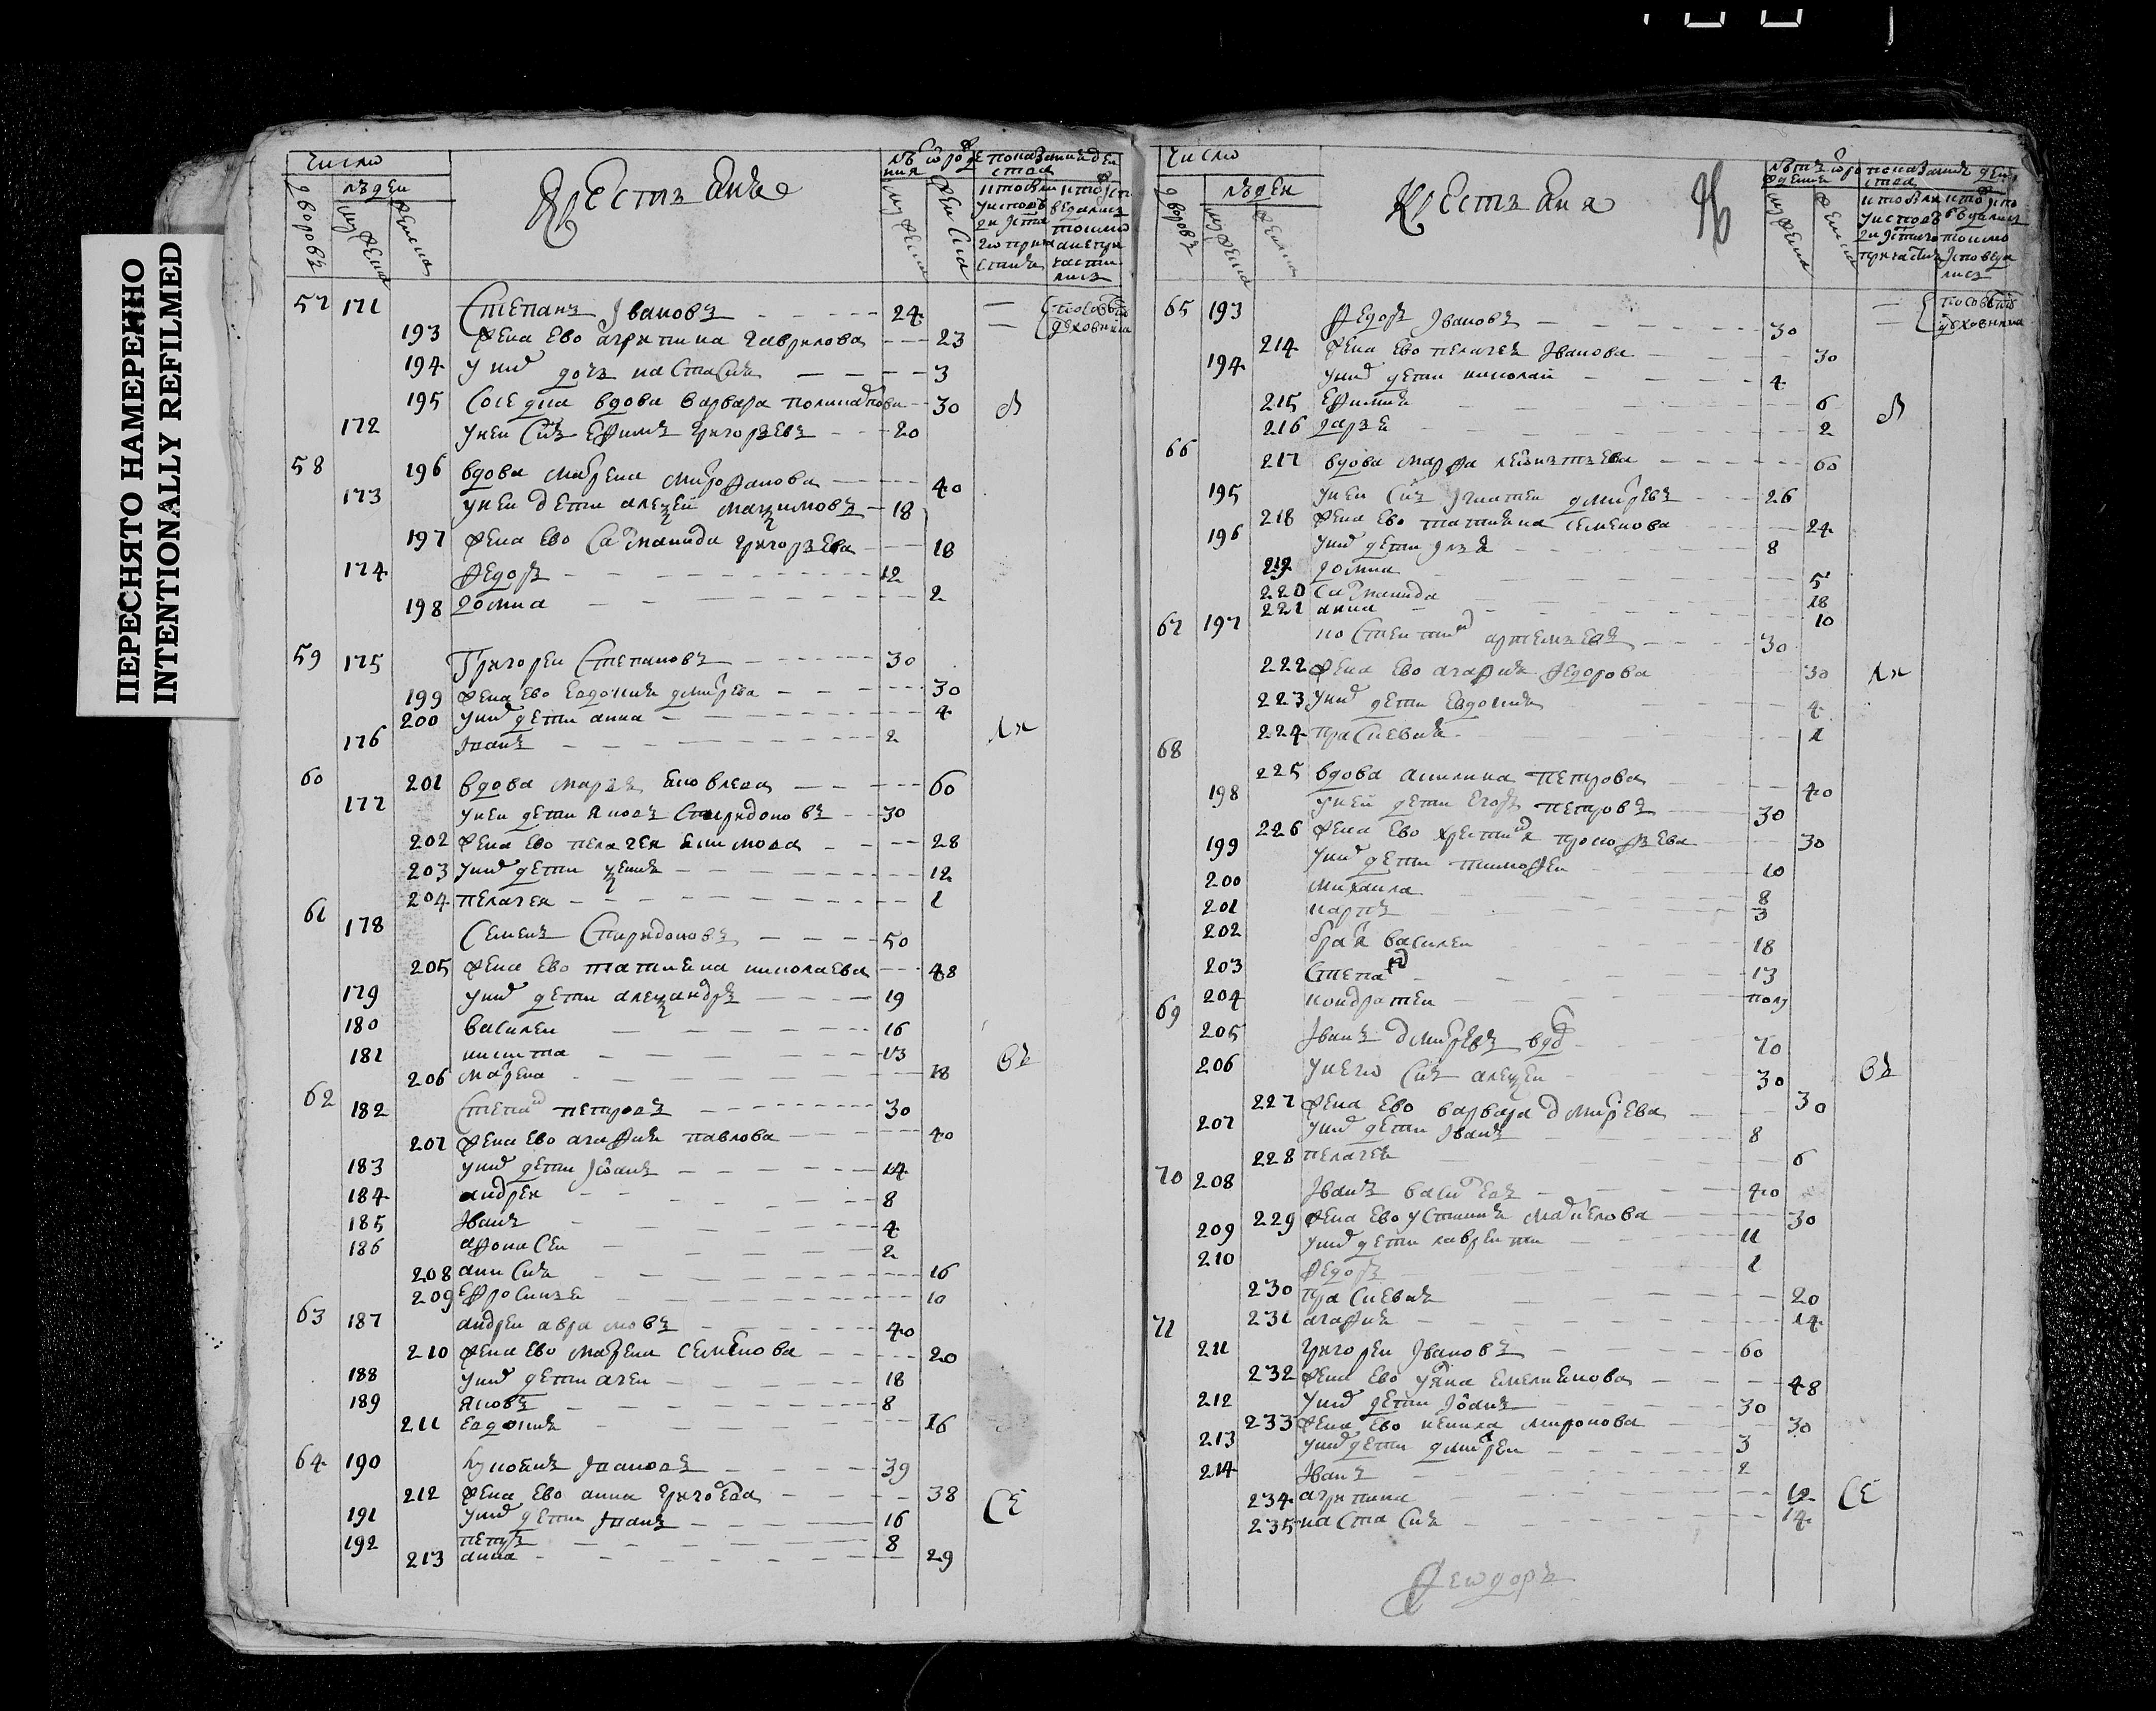 ПЕРЕСНЯТО НАМЕРЕННО
INTENTIONALLY REFILMED
число
дворовъ
людеи
мужеска
женска
Крестьяне
57 171 Степанъ Ивановъ 24
193 жена ево агрипина гаврилова 23
194 у них дочь настасия 3
195 Соседка вдова варвара 30
172 у неи снъ ефимъ григорьевъ 20
58 196 вдова марена митрофанова 40
173 у неи дети алексей максимовъ 18
197 жена ево соломанида григорьева 18
174 федоръ 12
198 домна 2
59 175 Григореи Степановъ 30
199 жена ево евдокия дмитрева 30
200 у них дети анна 4
176 Иванъ 2
60 201 вдова марья яковлева 60
177 у неи дети яковъ Спиридоновъ 30
202 жена ево пелагея екимова 28
203 у них дети ксения 12
204 пелагея 1
61 178 Семенъ Спиридоновъ 50
205 жена ево татияна николаева 48
179 у них дети александръ 19
180 василеи 16
181 никита 13
206 марена 18
62 182 Степан петровъ 30
207 жена ево агафия павлова 40
183 у них дети Иоанъ 14
184 андреи 8
185 Иванъ 4
186 афонасеи 2
208 анисия 16
209 ефросинья 10
63 187 андреи аврамовъ 40
210 жена ево марена семенова 20
188 у них дети агеи 18
189 яковъ 8
211 евдокия 16
64 190 Лукоянъ Ивановъ 39
212 жена ево анна григоева 38
191 у них дети Иванъ 16
192 петръ 8
213 анна 29
число
дворовъ
людеи
мужеска
женска
Крестьяня
65 193 Федоръ Ивановъ 30
214 жена ево пелагея Иванова 30
194 у них дети николаи 4
215 ефимия 6
216 дарья 2
66 217 вдова марфа 60
195 у неи снъ Игнатеи дмитревъ 26
218 жена ево татияна семенова 24
196 у них дети Илья 8
219 домна 5
220 соломанида 18
221 анна 10
67 197 костентин артемьевъ 30
222 жена ево агафия федорова 30
223 у них дети евдокия 4
224 прасковия 1
68 225 вдова акилина петрова 40
198 у ней дети егоръ петровъ 30
226 жена ево христина прокофьева 30
199 у них дети тимофеи 10
200 михаила 8
201 карпъ 3
202 братя василеи 18
203 Степан 13
204 кондратеи полу
69 205 Иванъ дмитревъ вдовъ 70
206 у нево снъ алексеи 30
227 жена ево варвара дмитрева 30
207 у них дети Иванъ 8
228 пелагея 6
70 208 Иванъ василевъ 40
229 жена ево устиния 30
209 у них дети лаврентеи 11
210 федоръ 1
230 прасковия 20
231 агафия 14
71 211 григореи Ивановъ 60
232 жена ево уляна емелиянова 48
212 у них дети Иоанъ 30
233 жена ево ненила миронова 30
213 у них дети дмитреи 3
214 Иванъ 2
234 агрипина 12
235 настасия 14
Феодоръ